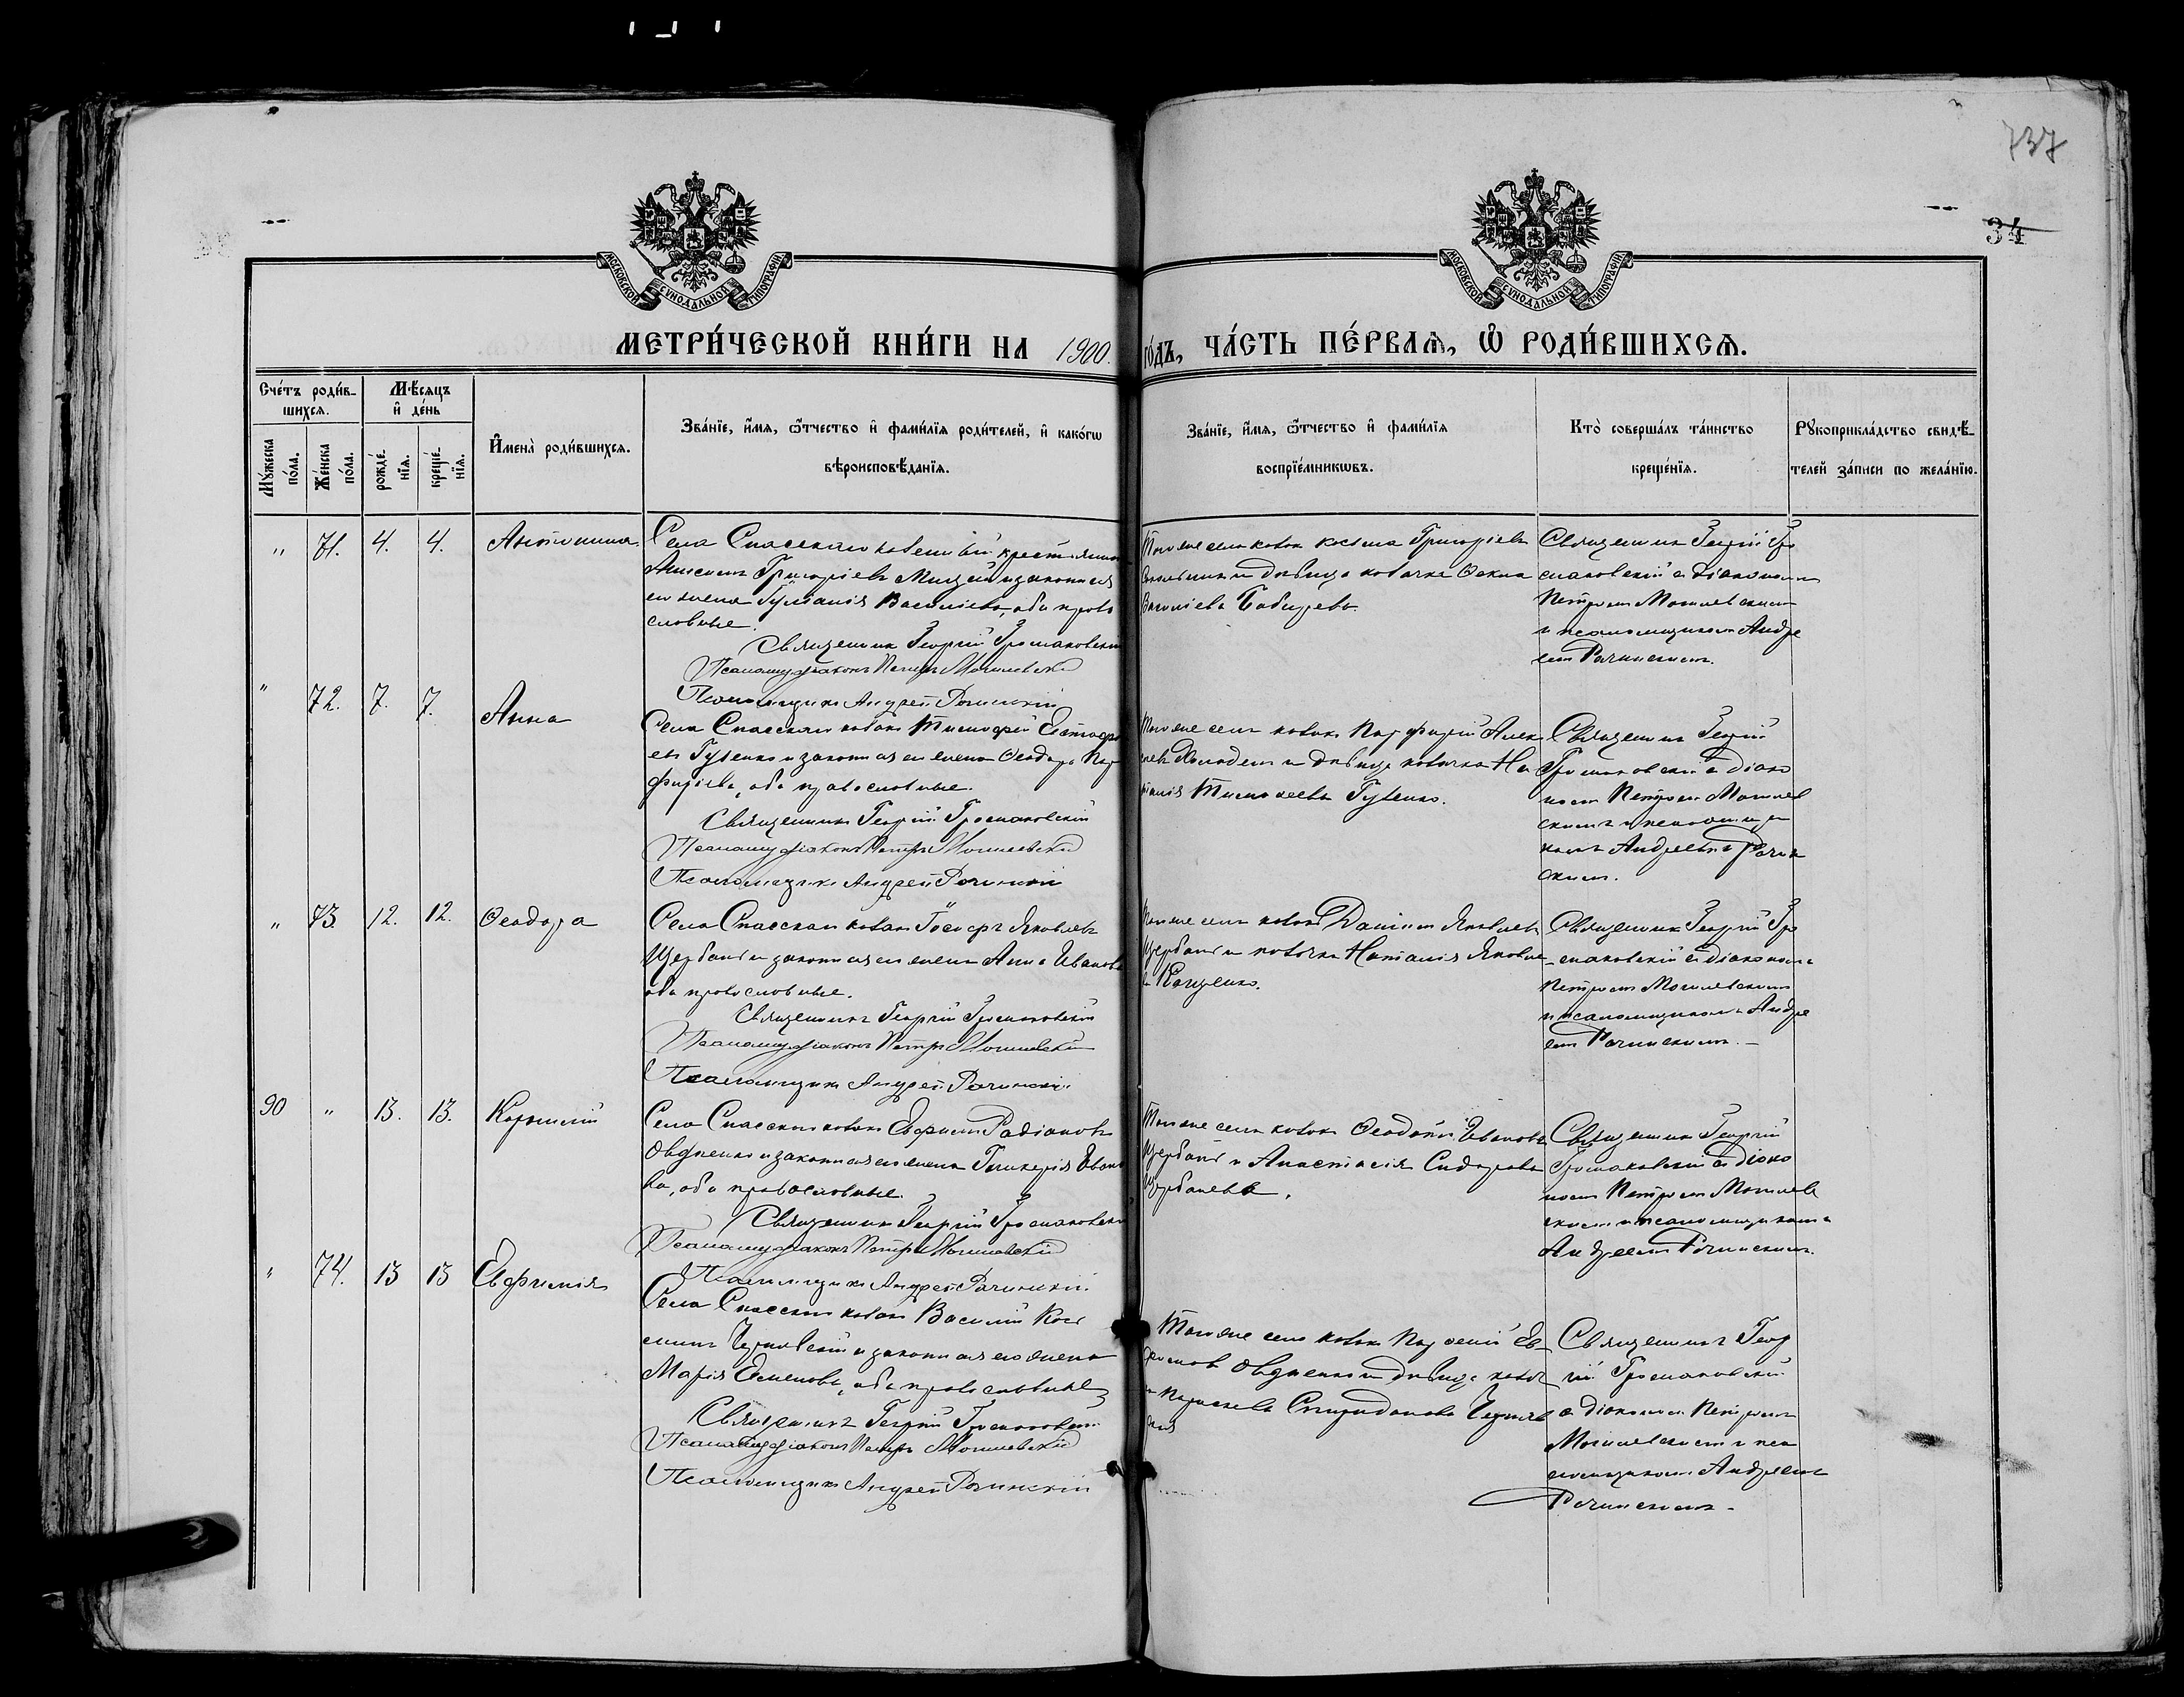 737
34
МОСКОВСКОЙ СѴНОДАЛЬНОЙ ТИПОГРАФІИ
МОСКОВСКОЙ СѴНОДАЛЬНОЙ ТИПОГРАФІИ
МЕТРИ́ЧЕСКОЙ КНИ́ГИ НА 1900. ГО́ДЪ, ЧА́СТЬ ПЕ́РВАѦ, Ѡ҆ РОДИ́ВШИХСѦ.
Сче́тъ роди́в-
шихсѧ.
Мѣ́сѧцъ
и҆ де́нь
Мꙋ́жеска
по́ла.
Же́нска
по́ла.
рожде́-
нїѧ.
креще́-
нїѧ.
И҆мена̀ роди́вшихсѧ.
Зва́нїе, и҆́мѧ, ѻ҆́тчество и҆ фами́лїѧ роди́телей, и҆ како́гѡ
вѣроисповѣ́данїѧ.
Зва́нїе, и҆́мѧ, ѻ҆́тчество и҆ фами́лїѧ
воспрїе́мникѡвъ.
Кто̀ соверша́лъ та́инство
креще́нїѧ.
Рꙋкоприкла́дство свидѣ́-
телей за́писи по жела́нїю.
„ 71. 4. 4. Антонина
Села Спасскаго
Григоріевъ и законная
его жена Іуліанія Васильева, оба право
славные.
Священникъ Георгій Громаковскій
Діаконъ Петръ Могилевскій
Псаломщикъ Андрей Рачинскій
Того же села козакъ Косьма Григоріевъ
и дѣвица козачка
Священникъ Георгій Гро
маковскій съ діакономъ
Петромъ Могилевскимъ
и псаломщикомъ Андре
емъ Рачинскимъ.
„ 72. 7. 7. Анна
Села Спасскаго козакъ Тимофей
евъ Гуленко и законная его жена Ѳеодора Пор
фиріева, оба православные.
Священникъ Георгій Громаковскій
Діаконъ Петръ Могилевскій
Псаломщикъ Андрей Рачинскій
Того же села козакъ Порфирій
и дѣвица козачка На
Гуленко.
Священникъ Георгій
Громаковскій съ діако
номъ Петромъ Могилев
скимъ и псаломщи
комъ Андреемъ Рачин
скимъ.
„ 73. 12. 12. Ѳеодора
Села Спасскаго козакъ Іосифъ Яковлевъ
Щербань и законная его жена Анна Иванова
оба православные.
Священникъ Георгій Громаковскій
Діаконъ Петръ Могилевскій
Псаломщикъ Андрей Рачинскій
Того же села козакъ Даніилъ Яковлевъ
Щербань и козачка Наталія Яковле
ва
Священникъ Георгій Гро
маковскій съ діакономъ
Петромъ Могилевскимъ
и псаломщикомъ Андре
емъ Рачинскимъ. —
90 „ 13. 13. Корнилій
Села Спасскаго козакъ Евфимъ Радіоновъ
Овдѣенко и законная его жена Гликерія Ивано
ва, оба православные.
Священникъ Георгій Громаковскій
Діаконъ Петръ Могилевскій
Псаломщикъ Андрей Рачинскій
Того же села козакъ Ѳеодотъ Ивановъ
Щербань и Анастасія Сидорова
Щербанева.
Священникъ Георгій
Громаковскій съ діако
номъ Петромъ Могилев
скимъ и псаломщикомъ
Андреемъ Рачинскимъ.
„ 74. 13 13 Евфимія
Села Спасскаго козакъ Василій Кось
минъ и законная его жена
Марія Семенова, оба православные
Священникъ Георгій Громаковскій
Діаконъ Петръ Могилевскій
Псаломщикъ Андрей Рачинскій
Того же села козакъ
Овдѣенко и дѣвица козач
Спиридонова
Священникъ Геор
гій Громаковскій
съ діакономъ Петромъ
Могилевскимъ и пса
ломщикомъ Андреемъ
Рачинскимъ.